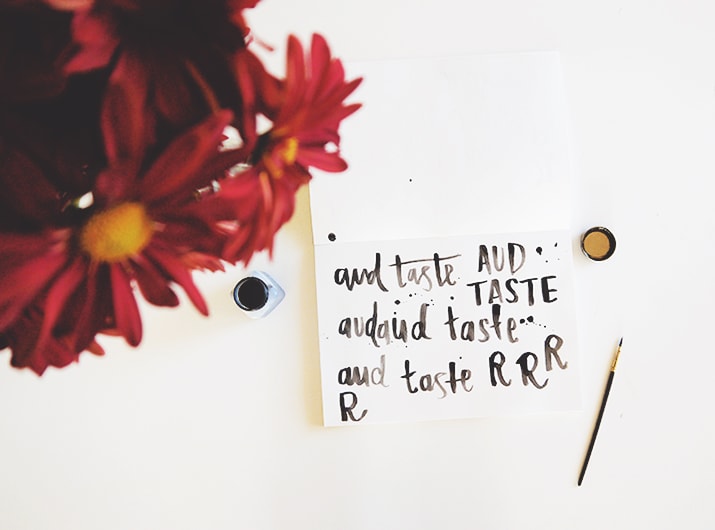 aud taste AUD
TASTE
audaud taste
aud taste R R R
R